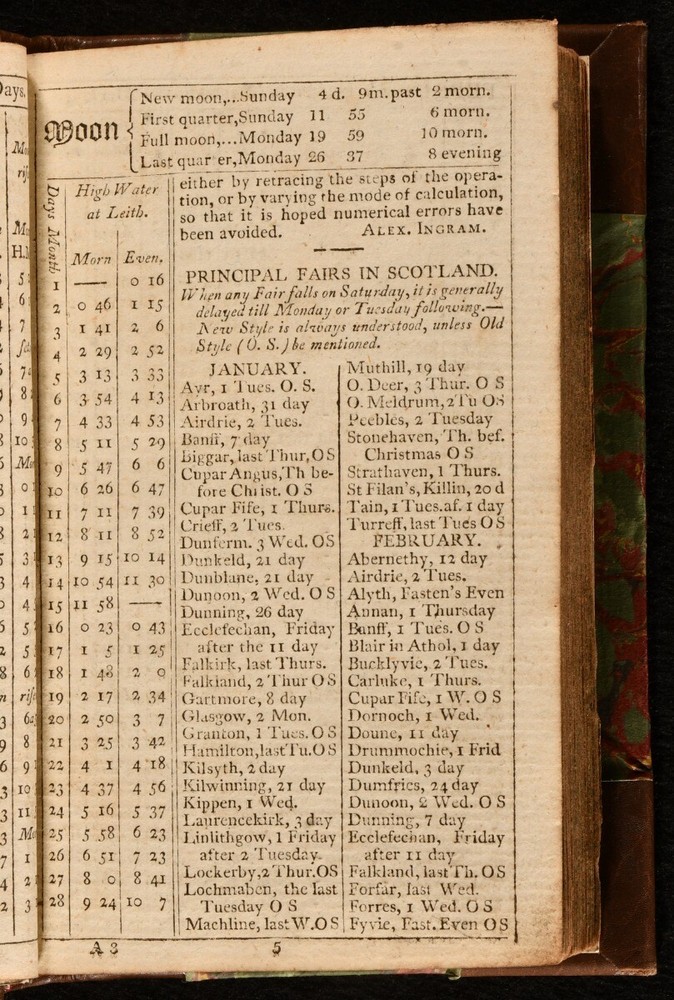 Days.
Moon
New moon,...Sunday 4 d. 9m.past 2 morn.
First quarter,Sunday 11 55 6 morn.
Full moon,...Monday 19 59 10 morn.
Last quar er,Monday 26 37 8 evening
Days Month
High Water
at Leith.
Morn Even.
1 —— 0 16
2 0 46 1 15
3 1 41 2 6
4 2 29 2 52
5 3 13 3 33
6 3 54 4 13
7 4 33 4 53
8 5 11 5 29
9 5 47 6 6
10 6 26 6 47
11 7 11 7 39
12 8 11 8 52
13 9 15 10 14
14 10 54 11 30
15 11 58 ——
16 0 23 0 43
17 1 5 1 25
18 1 48 2 0
19 2 17 2 34
20 2 50 3 7
21 3 25 3 42
22 4 1 4 18
23 4 37 4 56
24 5 16 5 37
25 5 58 6 23
26 6 51 7 23
27 8 0 8 41
28 9 24 10 7
either by retracing the steps of the opera-
tion, or by varying the mode of calculation,
so that it is hoped numerical errors have
been avoided. ALEX. INGRAM.
PRINCIPAL FAIRS IN SCOTLAND.
When any Fair falls on Saturday, it is generally
delayed till Monday or Tuesday following.—
New Style is always understood, unless Old
Style (O. S.) be mentioned.
JANUARY.
Ayr, 1 Tues. O. S.
Arbroath, 31 day
Airdrie, 2 Tues.
Banff, 7 day
Biggar, last Thur, OS
Cupar Angus, Th be-
fore Christ. O S
Cupar Fife, 1 Thurs.
Crieff, 2 Tues.
Dunferm. 3 Wed. OS
Dunkeld, 21 day
Dunblane, 21 day
Dunoon, 2 Wed. O S
Dunning, 26 day
Ecclefechan, Friday
after the 11 day
Falkirk, last Thurs.
Falkland, 2 Thur OS
Gartmore, 8 day
Glasgow, 2 Mon.
Granton, 1 Tues. O S
Hamilton, last Tu. O S
Kilsyth, 2 day
Kilwinning, 21 day
Kippen, 1 Wed.
Laurencekirk, 3 day
Linlithgow, 1 Friday
after 2 Tuesday.
Lockerby, 2 Thur. OS
Lochmaben, the last
Tuesday O S
Machline, last W. O S
Muthill, 19 day
O. Deer, 3 Thur. O S
O. Meldrum, 2 Tu OS
Peebles, 2 Tuesday
Stonehaven, Th. bef.
Christmas O S
Strathaven, 1 Thurs.
St Filan's, Killin, 20 d
Tain, 1 Tues. af. 1 day
Turreff, last Tues OS
FEBRUARY.
Abernethy, 12 day
Airdrie, 2 Tues.
Alyth, Fasten's Even
Annan, 1 Thursday
Banff, 1 Tues. O S
Blair in Athol, 1 day
Bucklyvie, 2 Tues.
Carluke, 1 Thurs.
Cupar Fife, 1 W. O S
Dornoch, 1 Wed.
Doune, 11 day
Drummochie, 1 Frid
Dunkeld, 3 day
Dumfries, 24 day
Dunoon, 2 Wed. O S
Dunning, 7 day
Ecclefechan, Friday
after 11 day
Falkland, last Th. OS
Forfar, last Wed.
Forres, 1 Wed. O S
Fyvie, Fast. Even OS
A 3
5